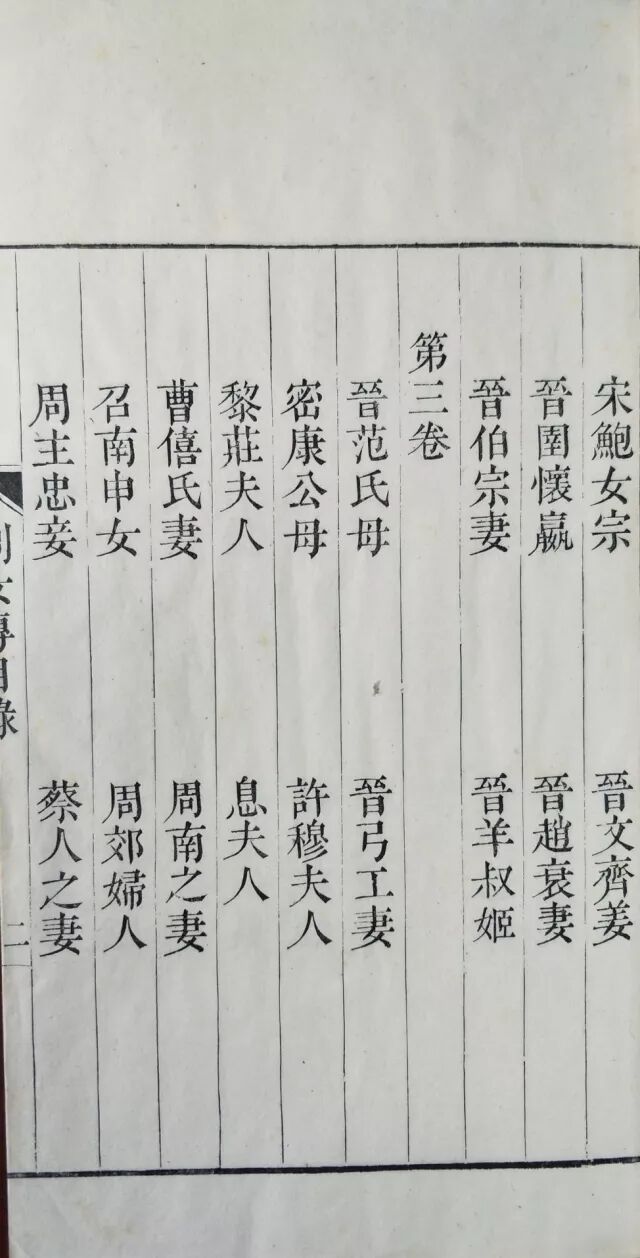 宋鮑女宗 晉文齊姜
晉圉懷嬴 晉趙衰妻
晉伯宗妻 晉羊叔姬
第三卷
晉范氏母 晉弓工妻
密康公母 許穆夫人
黎莊夫人 息夫人
曹僖氏妻 周南之妻
召南申女 周郊婦人
周主忠妾 蔡人之妻
列女傳目錄 二